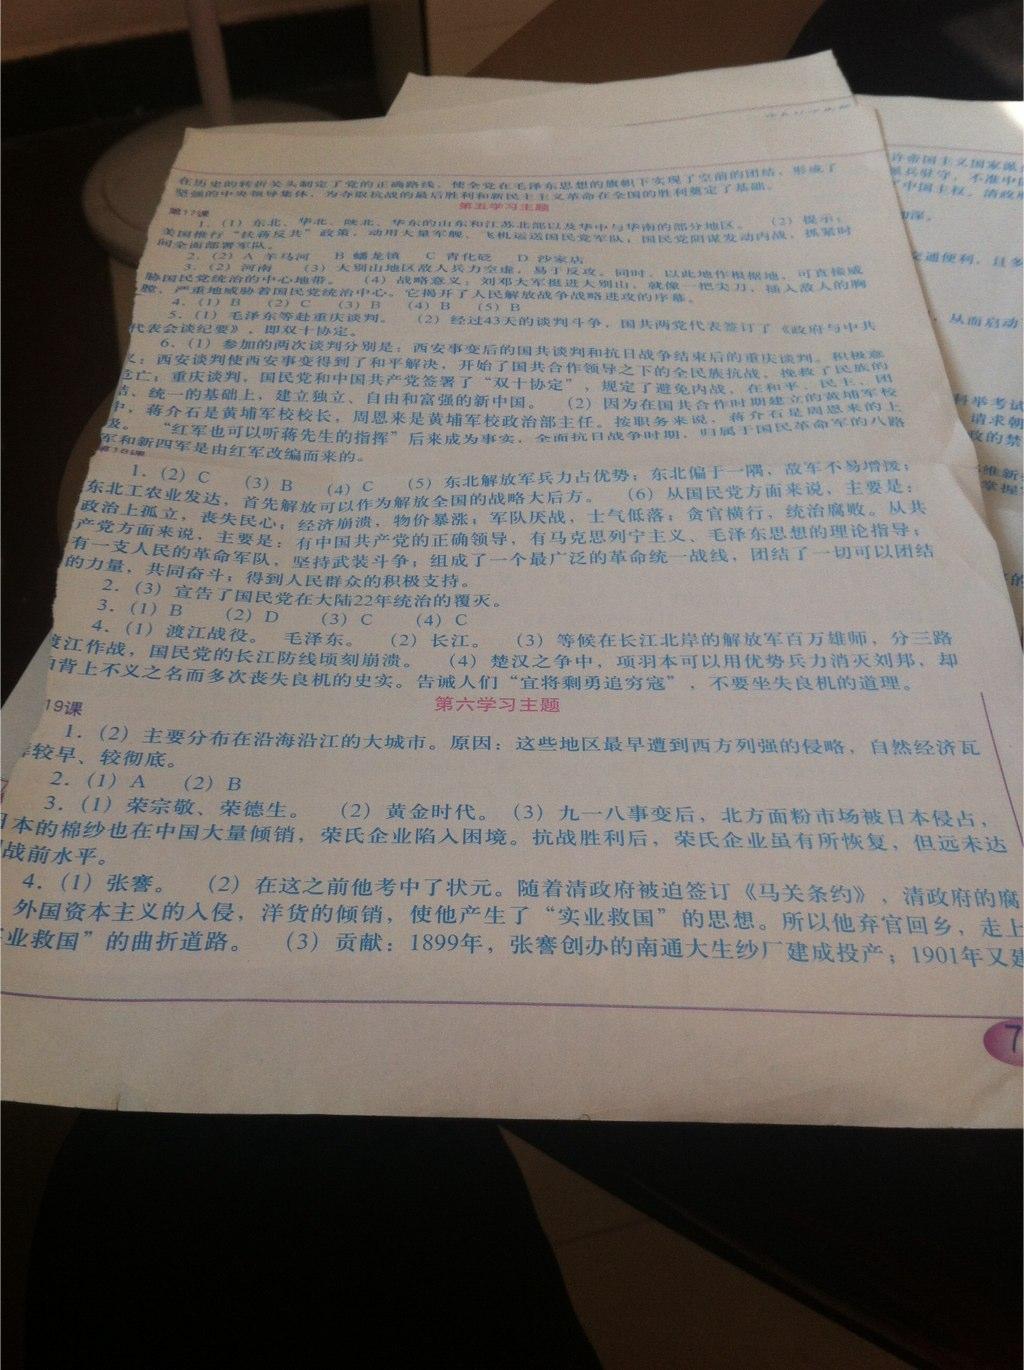 在历史的转折关头制定了党的正确路线，使全党在毛泽东思想的旗帜下实现了空前的团结，形成了
坚强的中央领导集体，为夺取抗战的最后胜利和新民主主义革命在全国的胜利奠定了基础。
第五学习主题
第17课
1．（1）东北、华北、陕北、华东的山东和江苏北部以及华中与华南的部分地区。（2）提示：
美国推行“扶蒋反共”政策，动用大量军舰、飞机运送国民党军队；国民党阴谋发动内战，抓紧时
间全面部署军队。
2．（2）A 羊马河 B 蟠龙镇 C 青化砭 D 沙家店
3．（2）河南 （3）大别山地区敌人兵力空虚，易于反攻。同时，以此地作根据地，可直接威
胁国民党统治的中心地带。（4）战略意义：刘邓大军挺进大别山，就像一把尖刀，插入敌人的胸
膛，严重地威胁着国民党统治中心。它揭开了人民解放战争战略进攻的序幕。
4．（1）B （2）C （3）B （4）B （5）B
5．（1）毛泽东等赴重庆谈判。（2）经过43天的谈判斗争，国共两党代表签订了《政府与中共
代表会谈纪要》，即双十协定。
6．（1）参加的两次谈判分别是：西安事变后的国共谈判和抗日战争结束后的重庆谈判。积极意
义：西安谈判使西安事变得到了和平解决，开始了国共合作领导之下的全民族抗战，挽救了民族的
危亡；重庆谈判，国民党和中国共产党签署了“双十协定”，规定了避免内战，在和平、民主、团
结、统一的基础上，建立独立、自由和富强的新中国。（2）因为在国共合作时期建立的黄埔军校
中，蒋介石是黄埔军校校长，周恩来是黄埔军校政治部主任。按职务来说，蒋介石是周恩来的上
级。“红军也可以听蒋先生的指挥”后来成为事实，全面抗日战争时期，归属于国民革命军的八路
军和新四军是由红军改编而来的。
第18课
1．（2）C （3）B （4）C （5）东北解放军兵力占优势；东北偏于一隅，敌军不易增援；
东北工农业发达，首先解放可以作为解放全国的战略大后方。（6）从国民党方面来说，主要是：
政治上孤立，丧失民心；经济崩溃，物价暴涨；军队厌战，士气低落；贪官横行，统治腐败。从共
产党方面来说，主要是：有中国共产党的正确领导，有马克思列宁主义、毛泽东思想的理论指导；
有一支人民的革命军队，坚持武装斗争；组成了一个最广泛的革命统一战线，团结了一切可以团结
的力量，共同奋斗；得到人民群众的积极支持。
2．（3）宣告了国民党在大陆22年统治的覆灭。
3．（1）B （2）D （3）C （4）C
4．（1）渡江战役。毛泽东。（2）长江。（3）等候在长江北岸的解放军百万雄师，分三路
渡江作战，国民党的长江防线顷刻崩溃。（4）楚汉之争中，项羽本可以用优势兵力消灭刘邦，却
背上不义之名而多次丧失良机的史实。告诫人们“宜将剩勇追穷寇”，不要坐失良机的道理。
第六学习主题
19课
1．（2）主要分布在沿海沿江的大城市。原因：这些地区最早遭到西方列强的侵略，自然经济瓦
解较早、较彻底。
2．（1）A （2）B
3．（1）荣宗敬、荣德生。（2）黄金时代。（3）九一八事变后，北方面粉市场被日本侵占，
日本的棉纱也在中国大量倾销，荣氏企业陷入困境。抗战胜利后，荣氏企业虽有所恢复，但远未达
战前水平。
4．（1）张謇。（2）在这之前他考中了状元。随着清政府被迫签订《马关条约》，清政府的腐
外国资本主义的入侵，洋货的倾销，使他产生了“实业救国”的思想。所以他弃官回乡，走上
业救国”的曲折道路。（3）贡献：1899年，张謇创办的南通大生纱厂建成投产；1901年又建
7
许帝国主义国家派
派兵驻守，不准中
中国主权。清政
交通便利，且多
从而启动
科举考试
请求朝
政的禁
维新
掌握